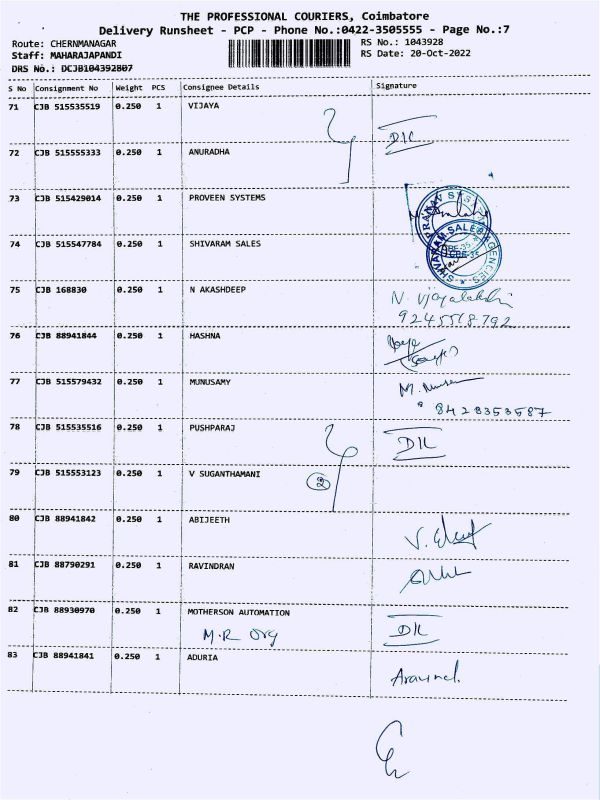 THE PROFESSIONAL COURIERS, Coimbatore
Delivery Runsheet - PCP - Phone No.:0422-3505555 - Page No.:7
Route: CHERNMANAGAR
RS No.: 1043928
Staff: MAHARAJAPANDI
RS Date: 20-Oct-2022
DRS No.: DCJB104392807
S No Consignment No Weight PCS Consignee Details Signature
71 CJB 515535519 0.250 1 VIJAYA
DIL
72 CJB 515555333 0.250 1 ANURADHA
73 CJB 515429014 0.250 1 PROVEEN SYSTEMS
74 CJB 515547784 0.250 1 SHIVARAM SALES
SHIVARAM SALES AGENCIES
CBE-35
75 CJB 168830 0.250 1 N AKASHDEEP
N. Vijayalakshi
9245518792
76 CJB 88941844 0.250 1 HASHNA
77 CJB 515579432 0.250 1 MUNUSAMY
8428353587
78 CJB 515535516 0.250 1 PUSHPARAJ DIL
79 CJB 515553123 0.250 1 V SUGANTHAMANI
2
80 CJB 88941842 0.250 1 ABIJEETH
81 CJB 88790291 0.250 1 RAVINDRAN
82 CJB 88930970 0.250 1 MOTHERSON AUTOMATION
M.R Org DIL
83 CJB 88941841 0.250 1 ADURIA
Aravind.